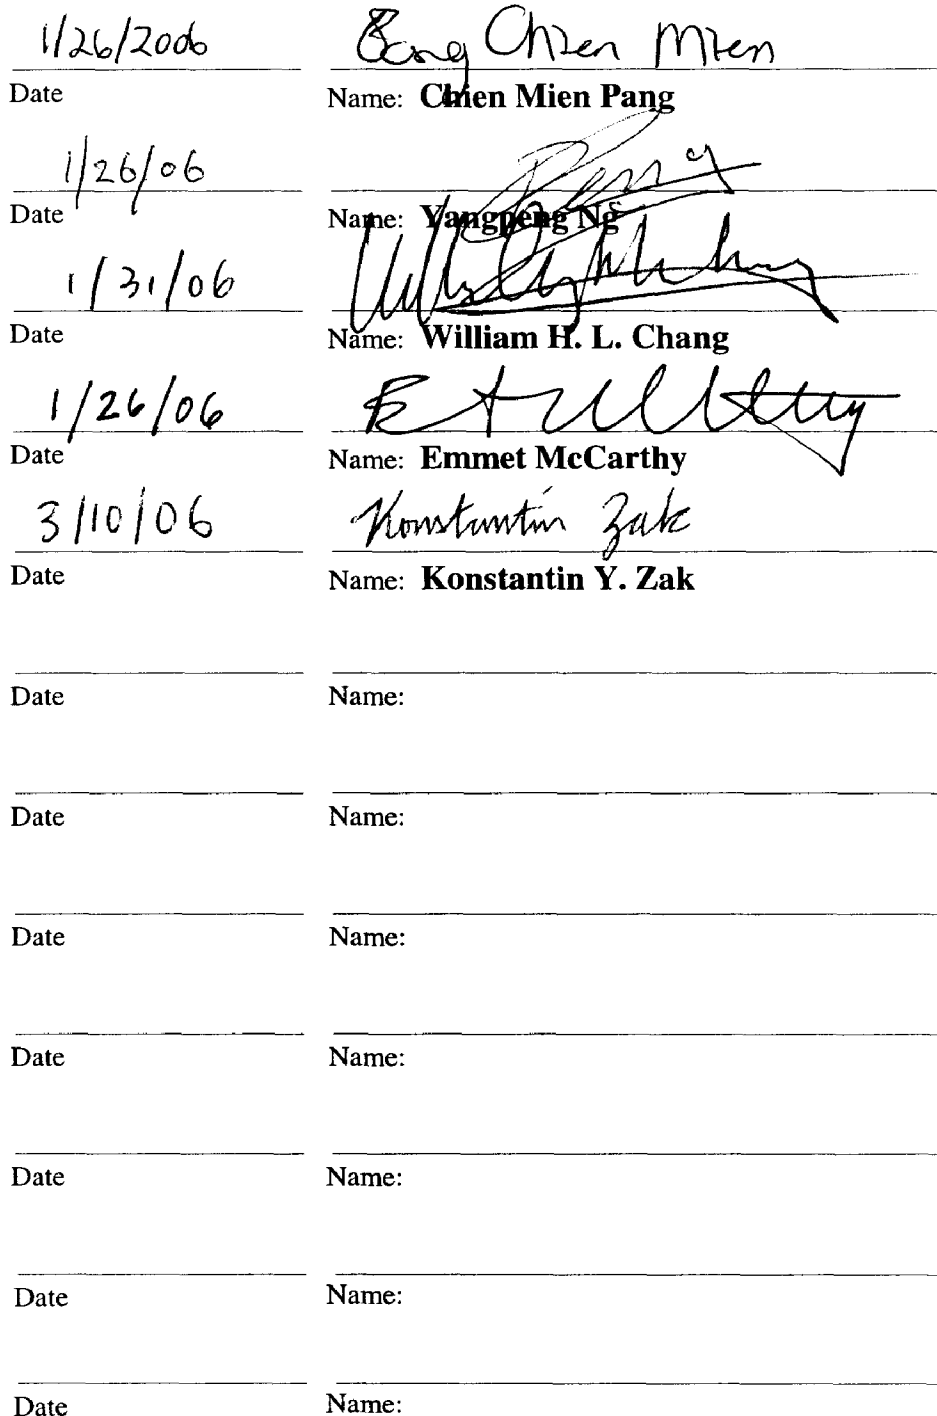 1/26/2006 Pang Chien Mien
Date Name: Chien Mien Pang
1/26/06
Date Name: Yangpeng Ng
1/31/06
Date Name: William H. L. Chang
1/26/06
Date Name: Emmet McCarthy
3/10/06 Konstantin Zak
Date Name: Konstantin Y. Zak
Date Name:
Date Name:
Date Name:
Date Name:
Date Name:
Date Name:
Date Name: